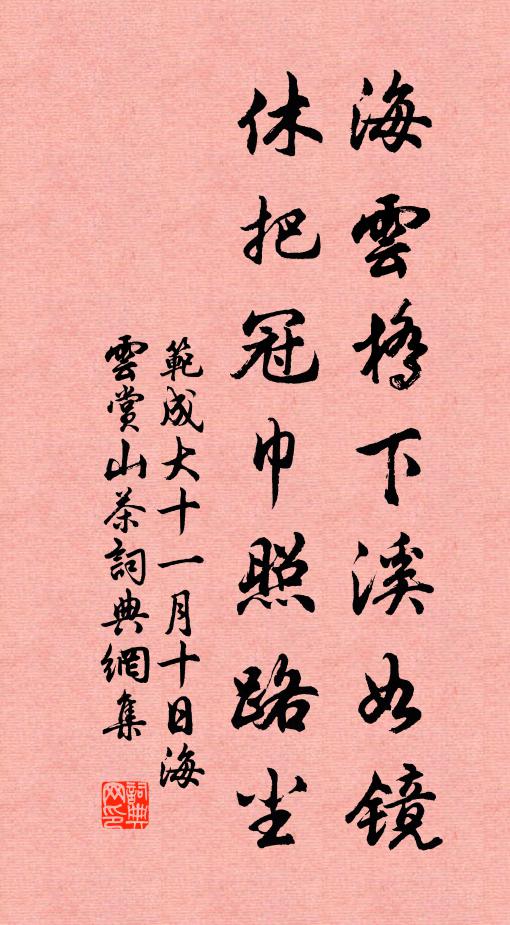 海雲橋下溪如鏡
休把冠巾照路尘
範成大十一月十日海
雲賞山茶詞典網集
詞典
网印